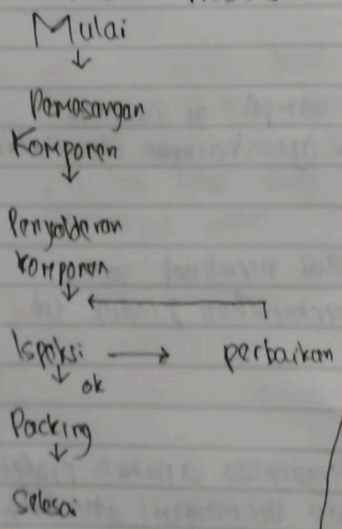 Mulai
Pemasangan
Komponen
Penyolderan
Komponen
Ispeksi
perbaikan
ok
Packing
Selesai